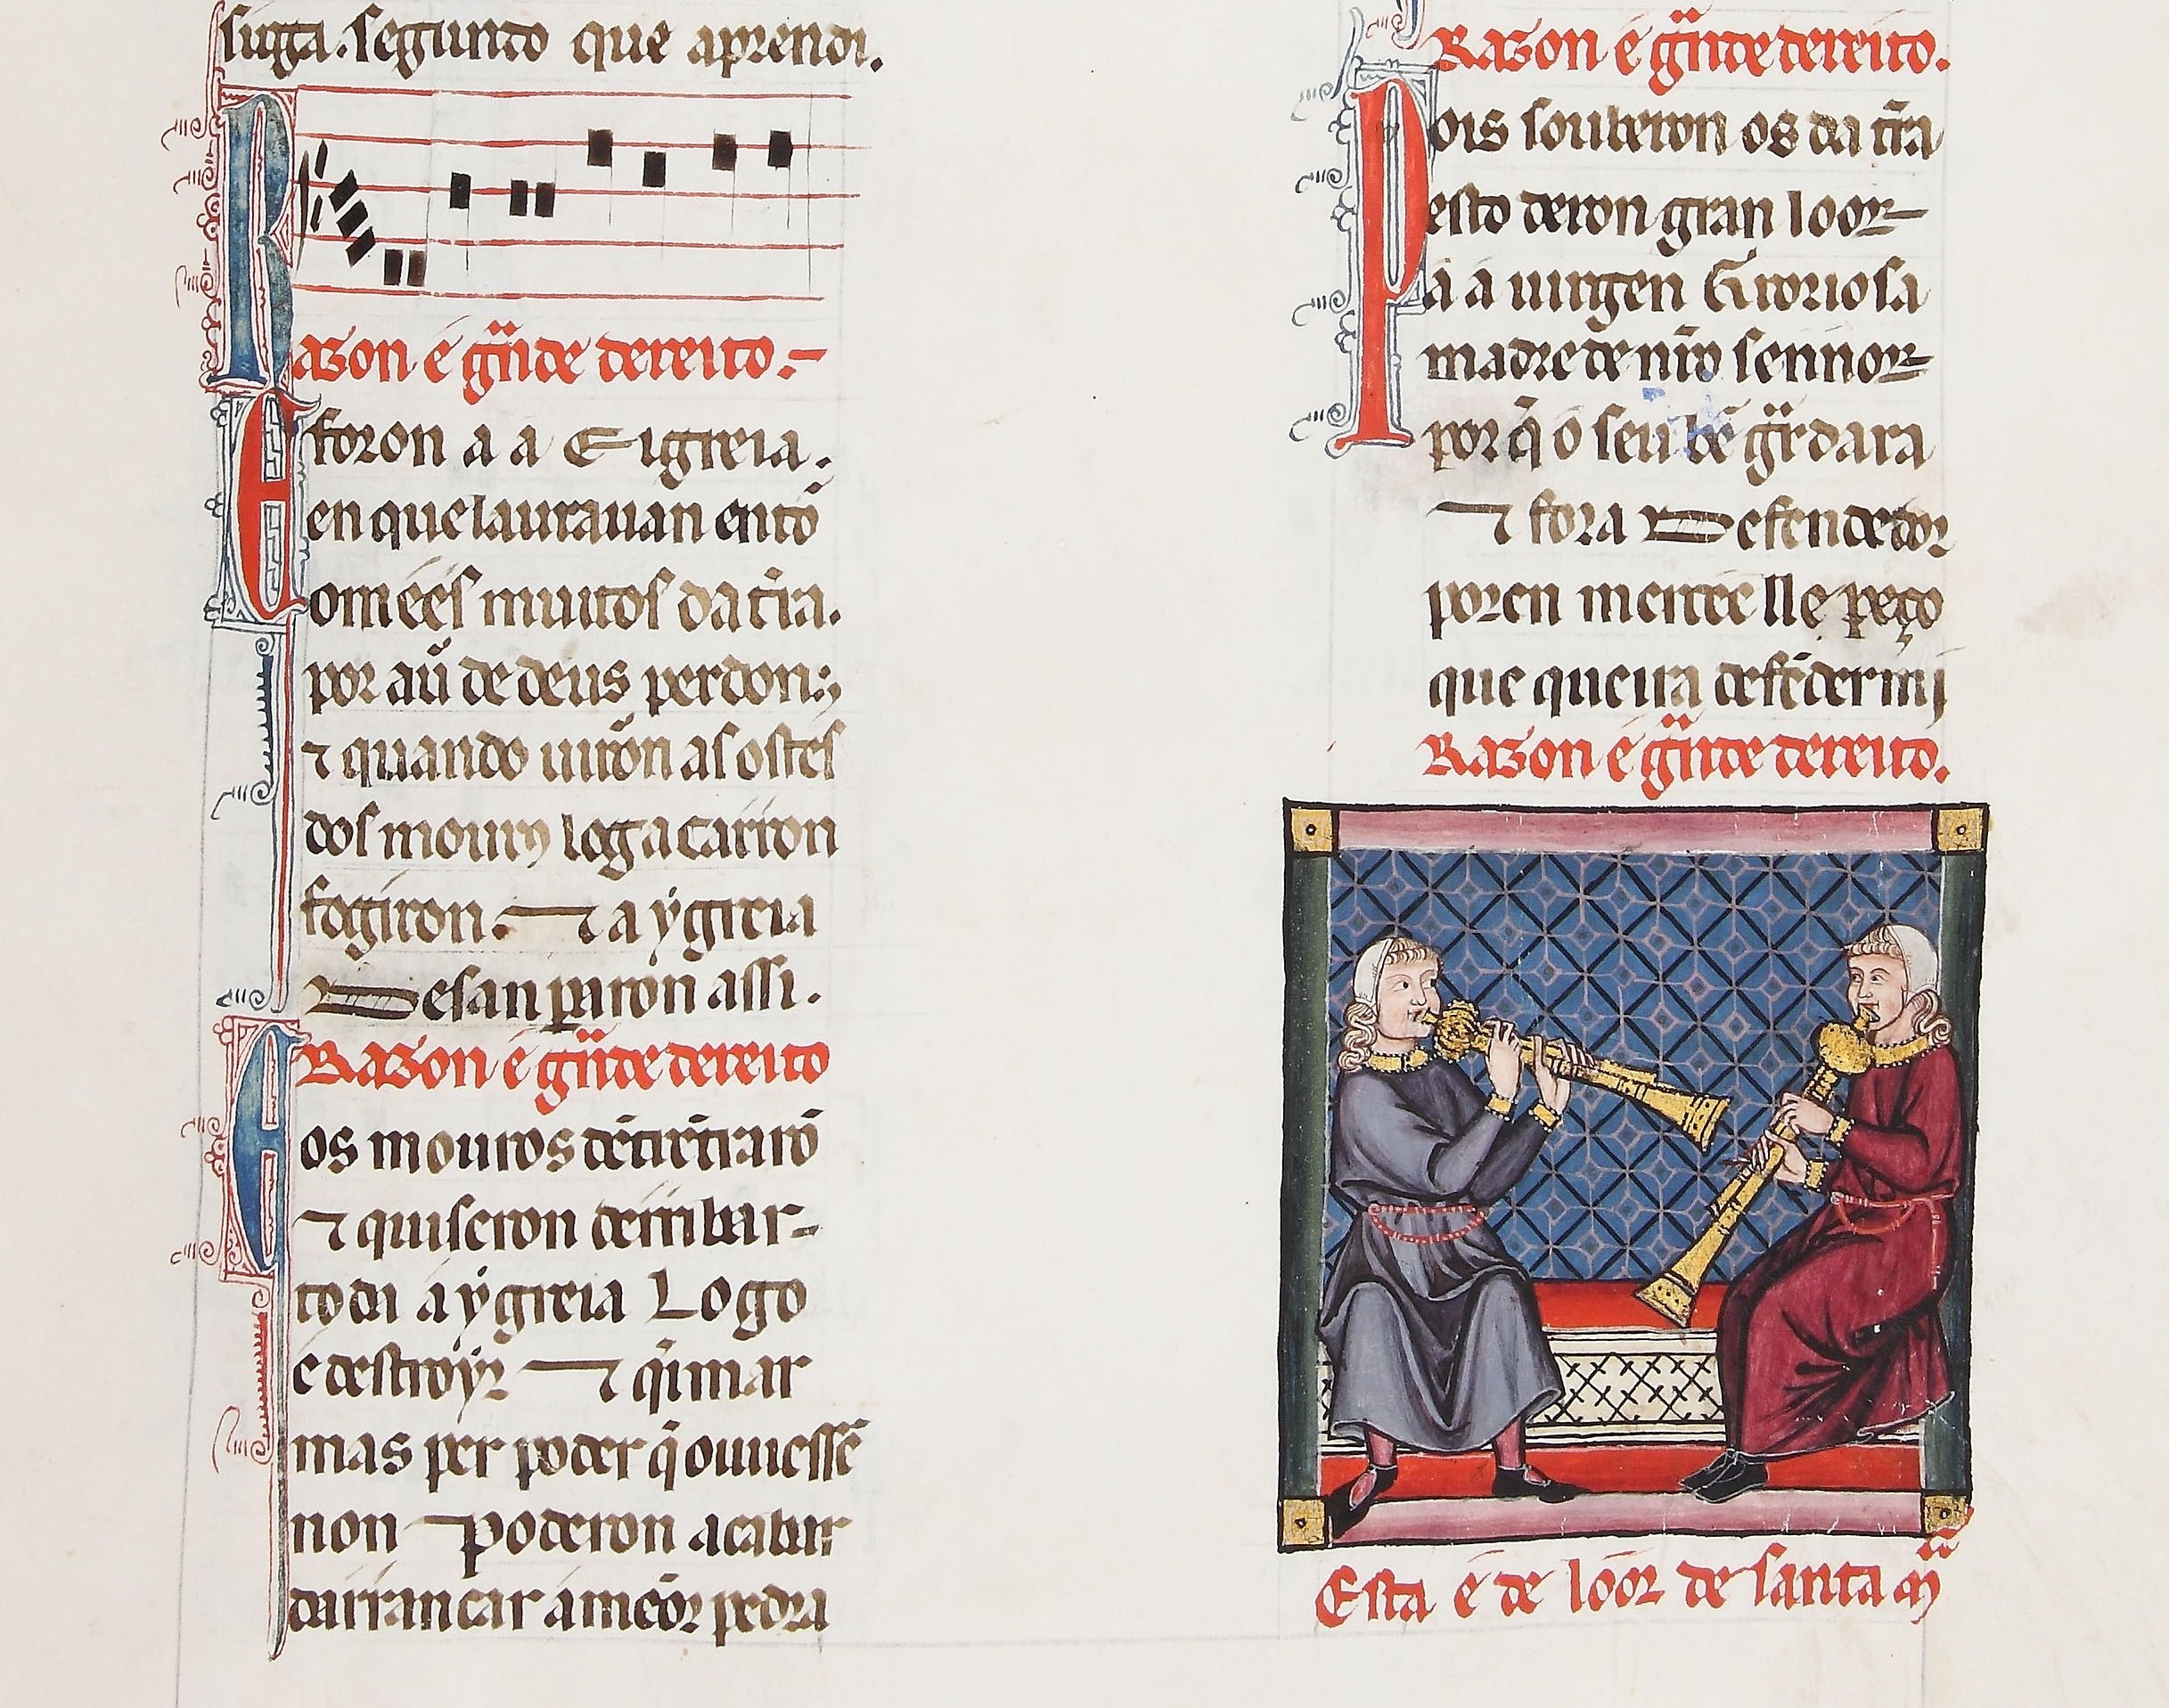 siqça. segundo que aprendi.
Razon é gr̃nde dereito.
E foron a a Eigreia.
en que laurauan entõ
omẽes muitos da t̃ra.
por aũ de deus perdon;
⁊ quando uirõn as ostes
dos mouros log a carron
fogiron. ⁊ a ygreia
Desanpararon assi.
Razon é gr̃nde dereito
E os mouros dẽt̃ ẽtrarõ
⁊ quiseron derribar
toda a ygreia Logo
e destroyr ⁊ q̃imar
mas per poder q̃ ouuessẽ
non poderon acabar
darrancar a mẽor pedra
Razon é gr̃nde dereito.
Pois souberon os da t̃ra
esto deron gran loor
a a uirgen Groriosa
madre de nr̃o sennor
por q̃ o seu bẽ gr̃dara
⁊ fora Defendedor
poren mercee lle peço
que queira defẽder mj
Razon é gr̃nde dereito.
Esta é de loor de santa M̃